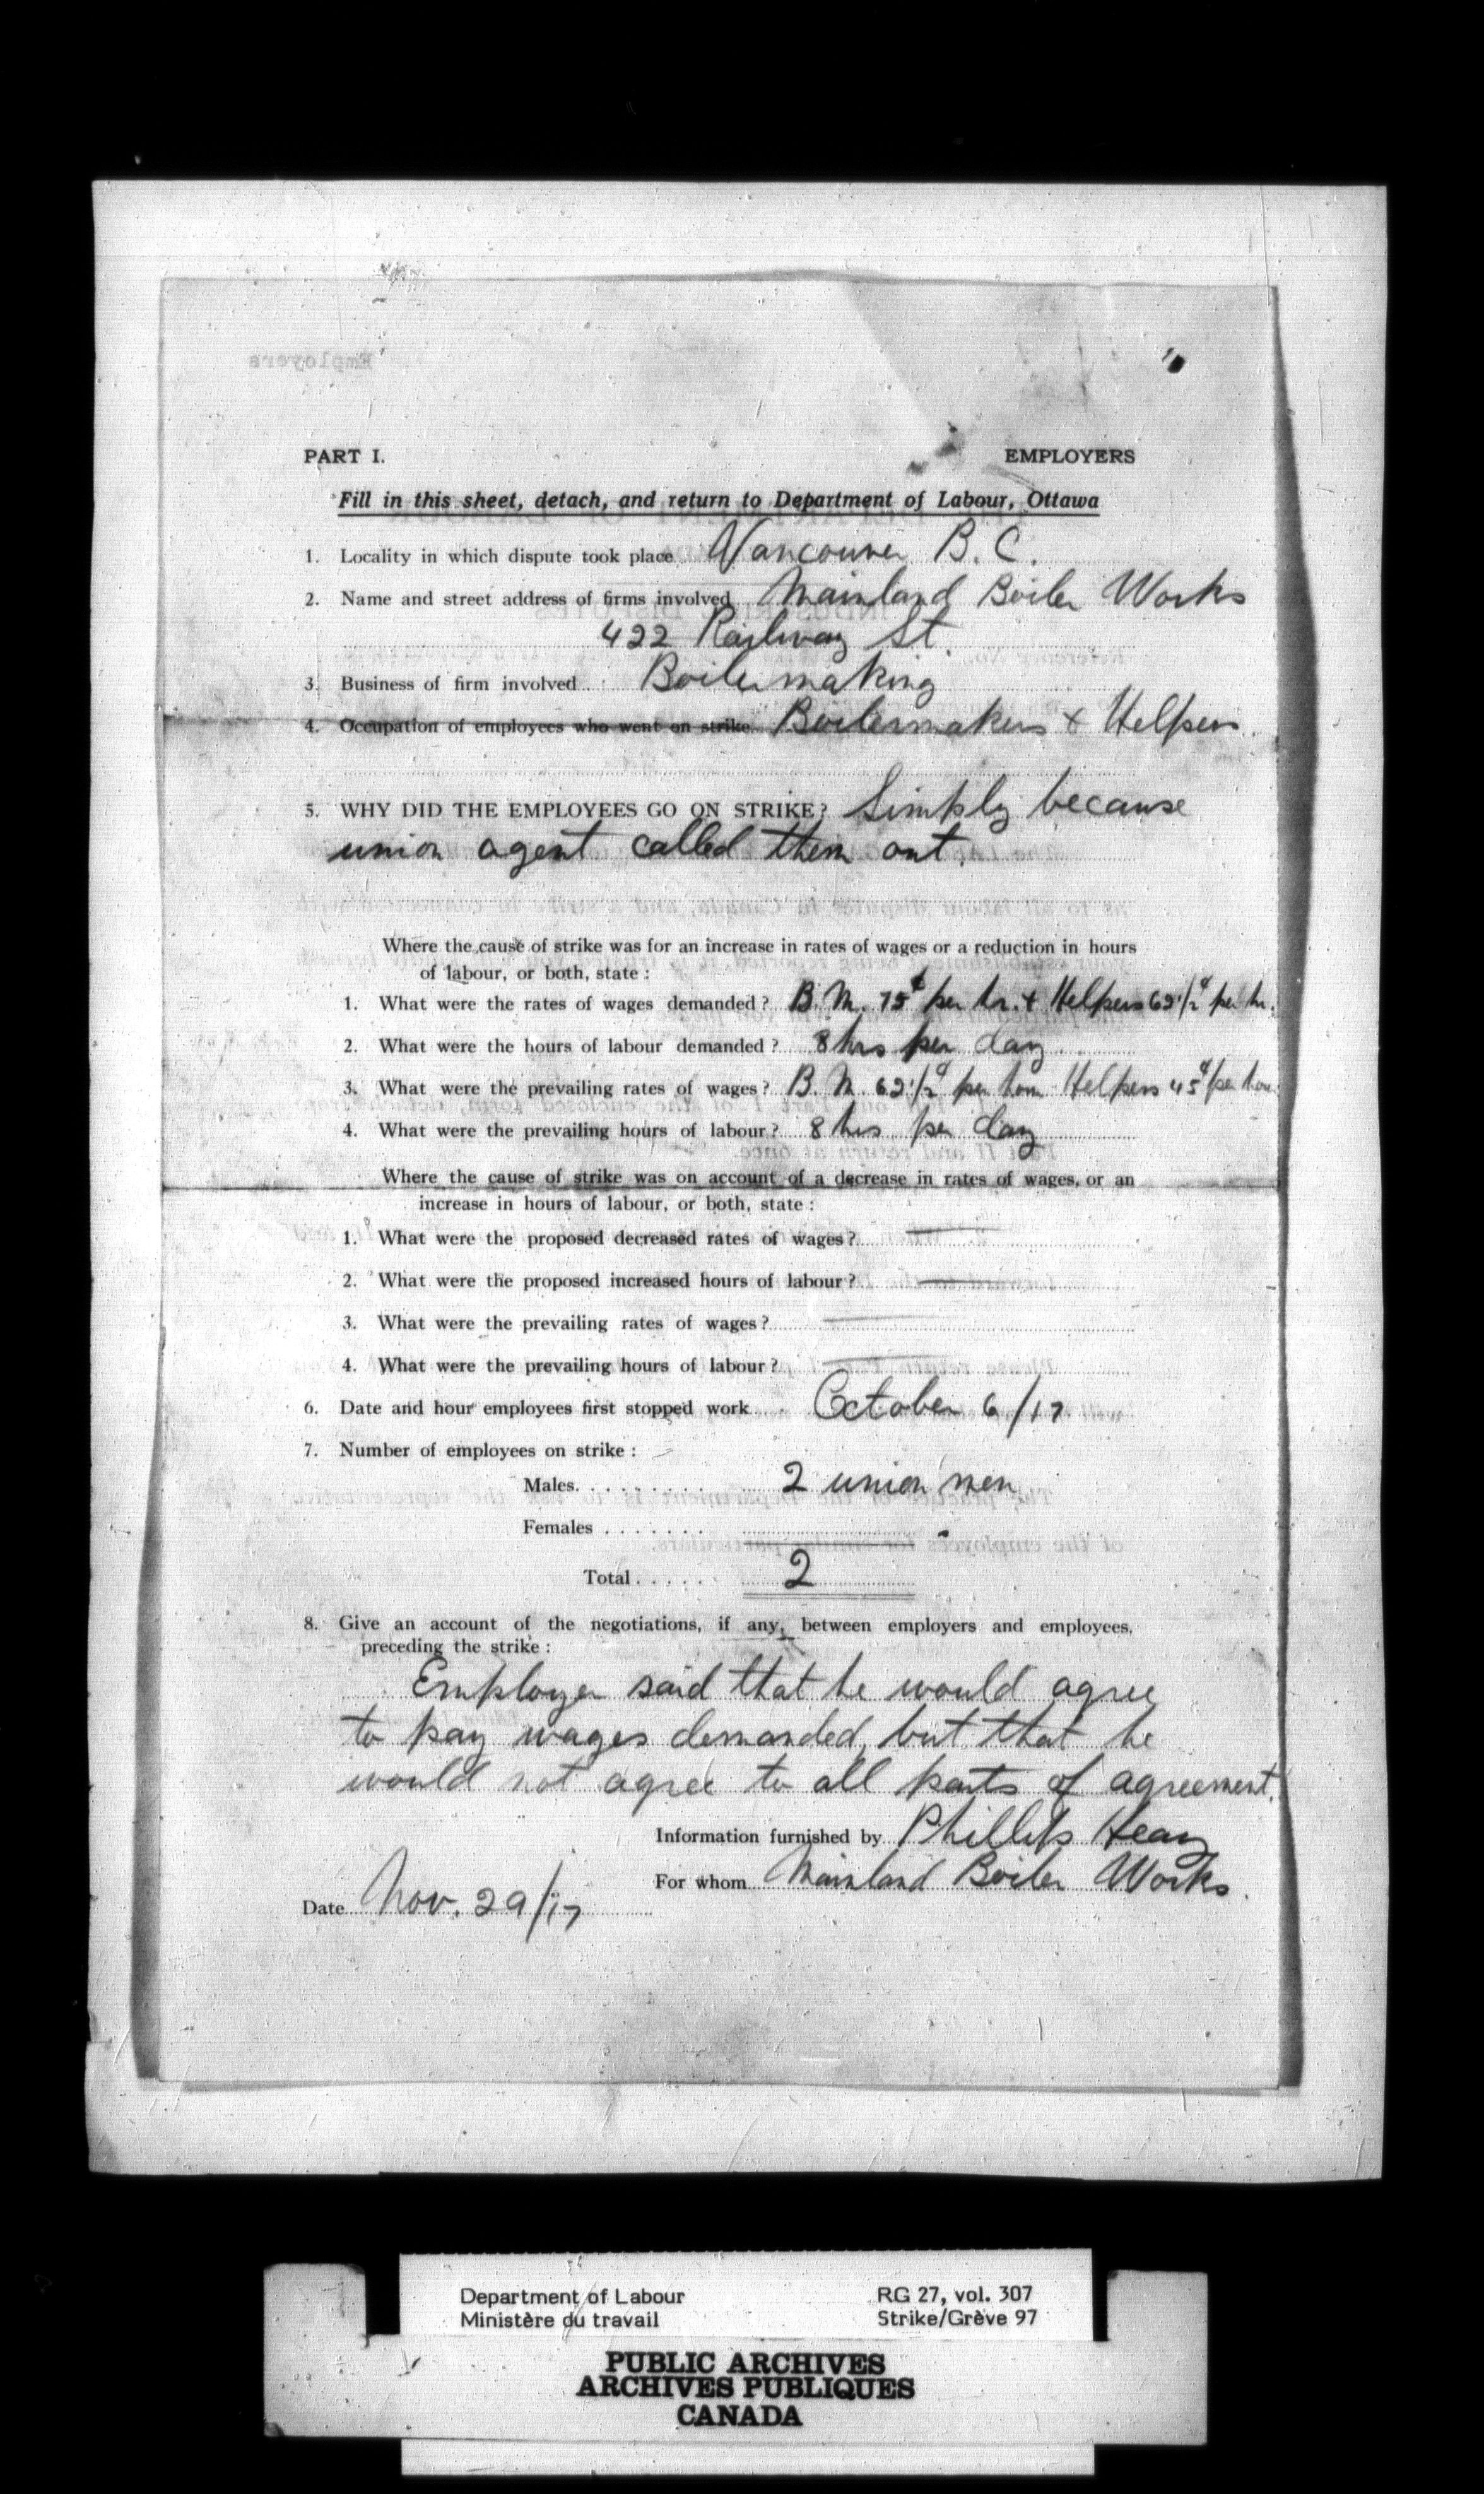 Employers
PART I. EMPLOYERS
Fill in this sheet, detach, and return to Department of Labour, Ottawa
1. Locality in which dispute took place Vancouver B. C.
2. Name and street address of firms involved Mainland Boiler Works
422 Railway St.
3. Business of firm involved Boilermaking
4. Occupation of employees who went on strike Boilermakers & Helpers
5. WHY DID THE EMPLOYEES GO ON STRIKE? Simply because
union agent called them out.
Where the cause of strike was for an increase in rates of wages or a reduction in hours
of labour, or both, state :
1. What were the rates of wages demanded? B. M. 75¢ per hr. & Helpers 62 1/2¢ per hr.
2. What were the hours of labour demanded? 8 hrs per day
3. What were the prevailing rates of wages? B. M. 62 1/2¢ per hour Helpers 45¢ per hour
4. What were the prevailing hours of labour? 8 hrs per day
Where the cause of strike was on account of a decrease in rates of wages, or an
increase in hours of labour, or both, state :
1. What were the proposed decreased rates of wages? —
2. What were the proposed increased hours of labour? —
3. What were the prevailing rates of wages? —
4. What were the prevailing hours of labour? —
6. Date and hour employees first stopped work October 6/17
7. Number of employees on strike :
Males 2 union men
Females
Total 2
8. Give an account of the negotiations, if any, between employers and employees,
preceding the strike :
Employer said that he would agree
to pay wages demanded, but that he
would not agree to all parts of agreement.
Information furnished by Phillips
For whom Mainland Boiler Works.
Date Nov. 29/17
Department of Labour RG 27, vol. 307
Ministère du travail Strike/Grève 97
PUBLIC ARCHIVES
ARCHIVES PUBLIQUES
CANADA